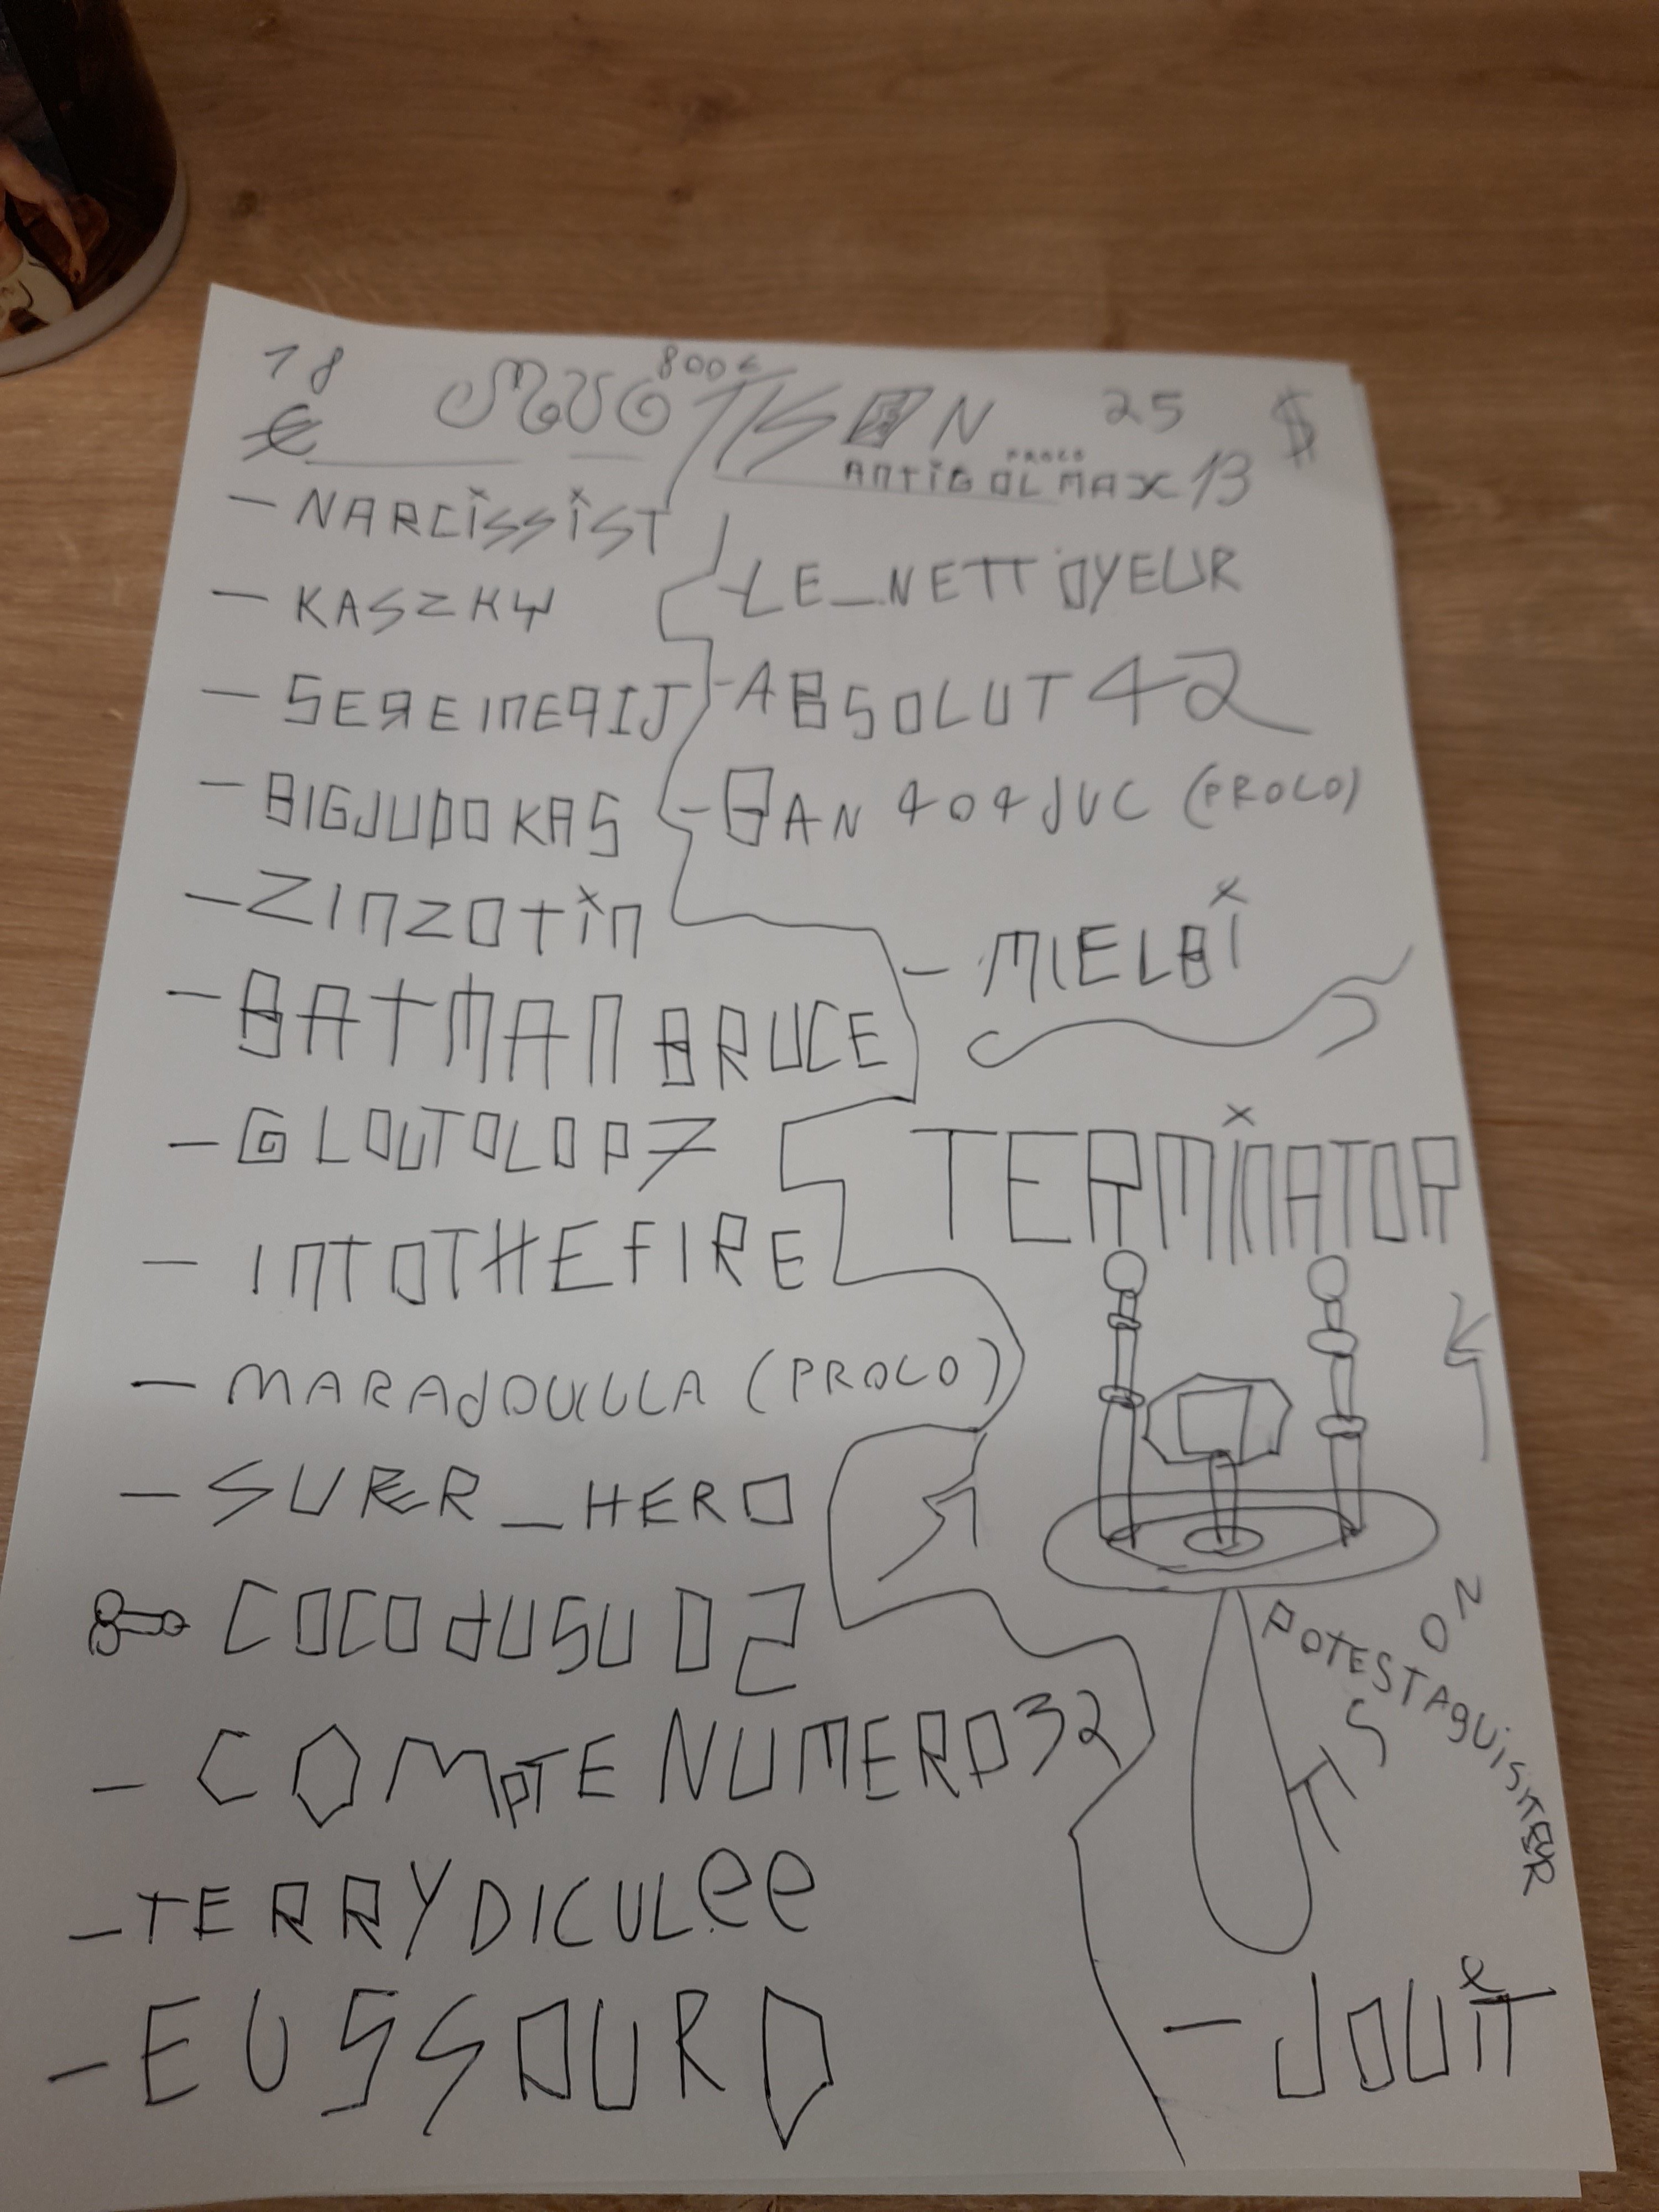 18 800€ 25 $
€
PROLO
ANTIGOLMAX13
- NARCISSIST
- KASZKY
- SEREINERIJ
- BIGJUDOKAS
- ZINZOTIN
- BATMANBRUCE
- GLOUTOLOP7
- INTOTHEFIRE
- MARADOUILLA (PROLO)
- SUPER_HERO
COCODUSUD2
- COMPTENUMERO32
- TERRYDICULee
- EUSSOURO
- LE_NETTOYEUR
- ABSOLUT42
- BAN404JVC (PROLO)
- MIELBI
TERMINATOR
- JOUIT